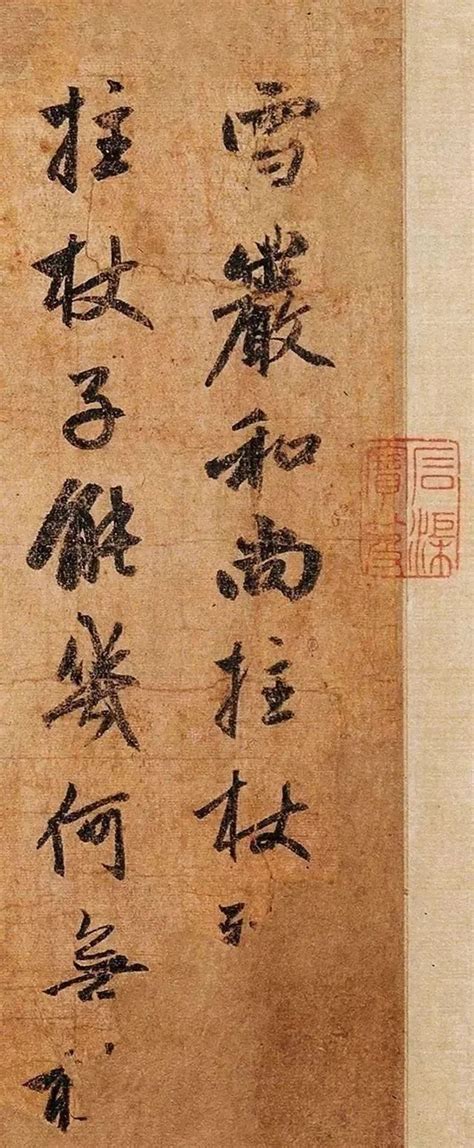 雪巖和尚拄杖
拄杖子能幾何無